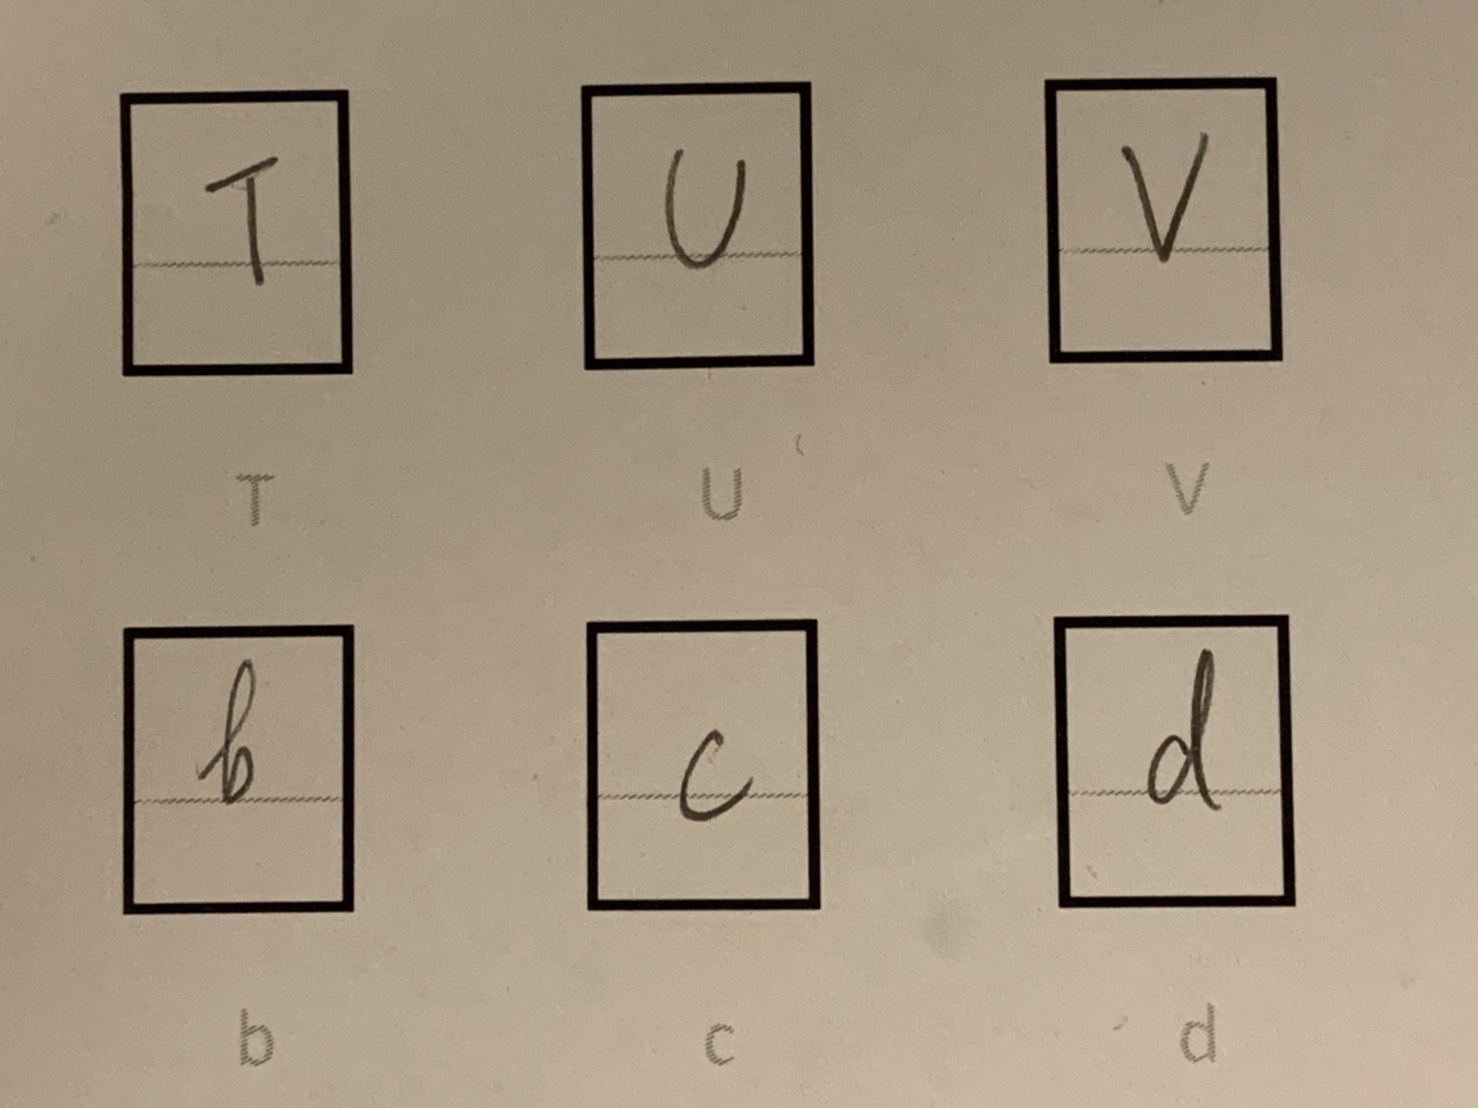 T U V
T U V
b c d
b c d